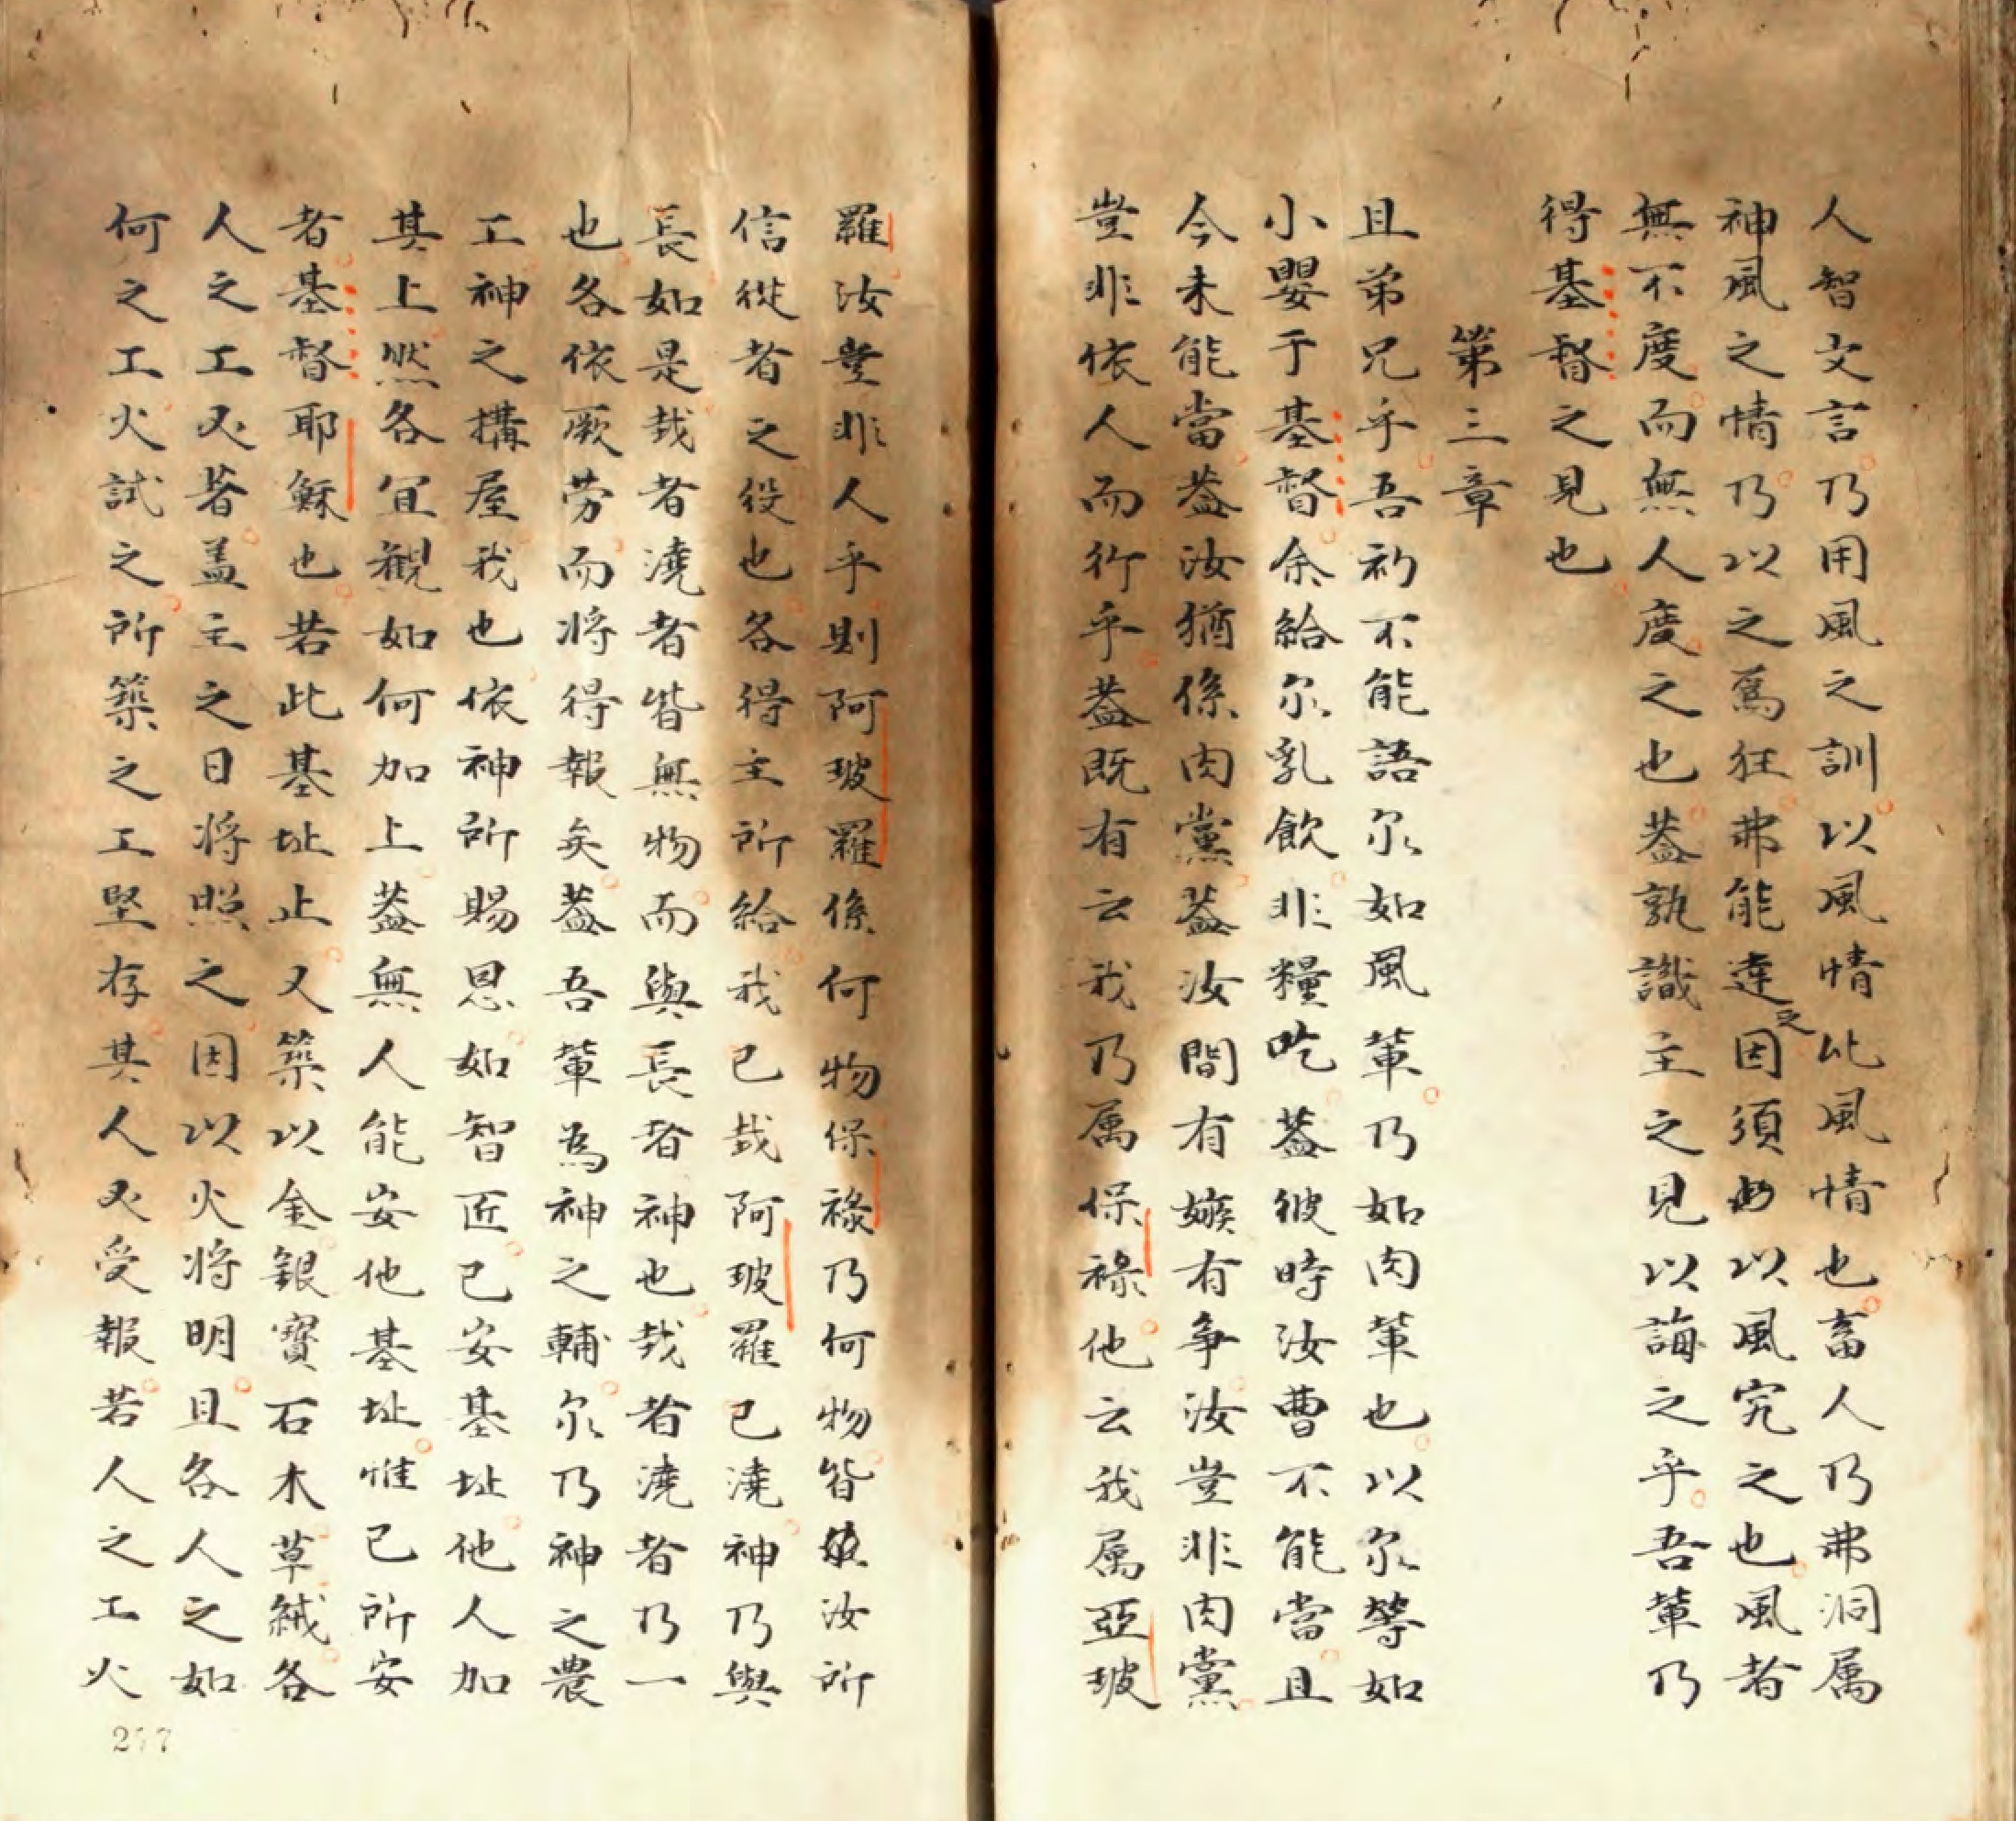 人智文言乃用風之訓以風情此風情也畜人乃弗洞属
神風之情乃以之爲狂弗能達之因須必以風究之也風者
無不度而無人度之也蓋孰識主之見以誨之乎吾輩乃
得基督之見也
第三章
且弟兄乎吾初不能語尔如風輩乃如肉輩也以尔等如
小嬰于基督余給尔乳飲非糧吃蓋彼時汝曹不能當且
今未能當蓋汝猶係肉黨蓋汝間有嫉有争汝豈非肉黨
豈非依人而行乎蓋既有云我乃属保祿他云我属亞玻
羅汝豈非人乎則阿玻羅係何物保祿乃何物皆役汝所
信從者之役也各得主所給我已栽阿玻羅已澆神乃與
長如是栽者澆者皆無物而與長者神也栽者澆者乃一
也各依厥劳而将得報矣蓋吾輩為神之輔尔乃神之農
工神之搆屋我也依神所賜恩如智匠已安基址他人加
其上然各宜觀如何加上蓋無人能安他基址惟已所安
者基督耶穌也若此基址止又築以金銀寳石木草絨各
人之工必著盖主之日将照之因以火将明且各人之如
何之工火試之所築之工堅存其人必受報若人之工火
277